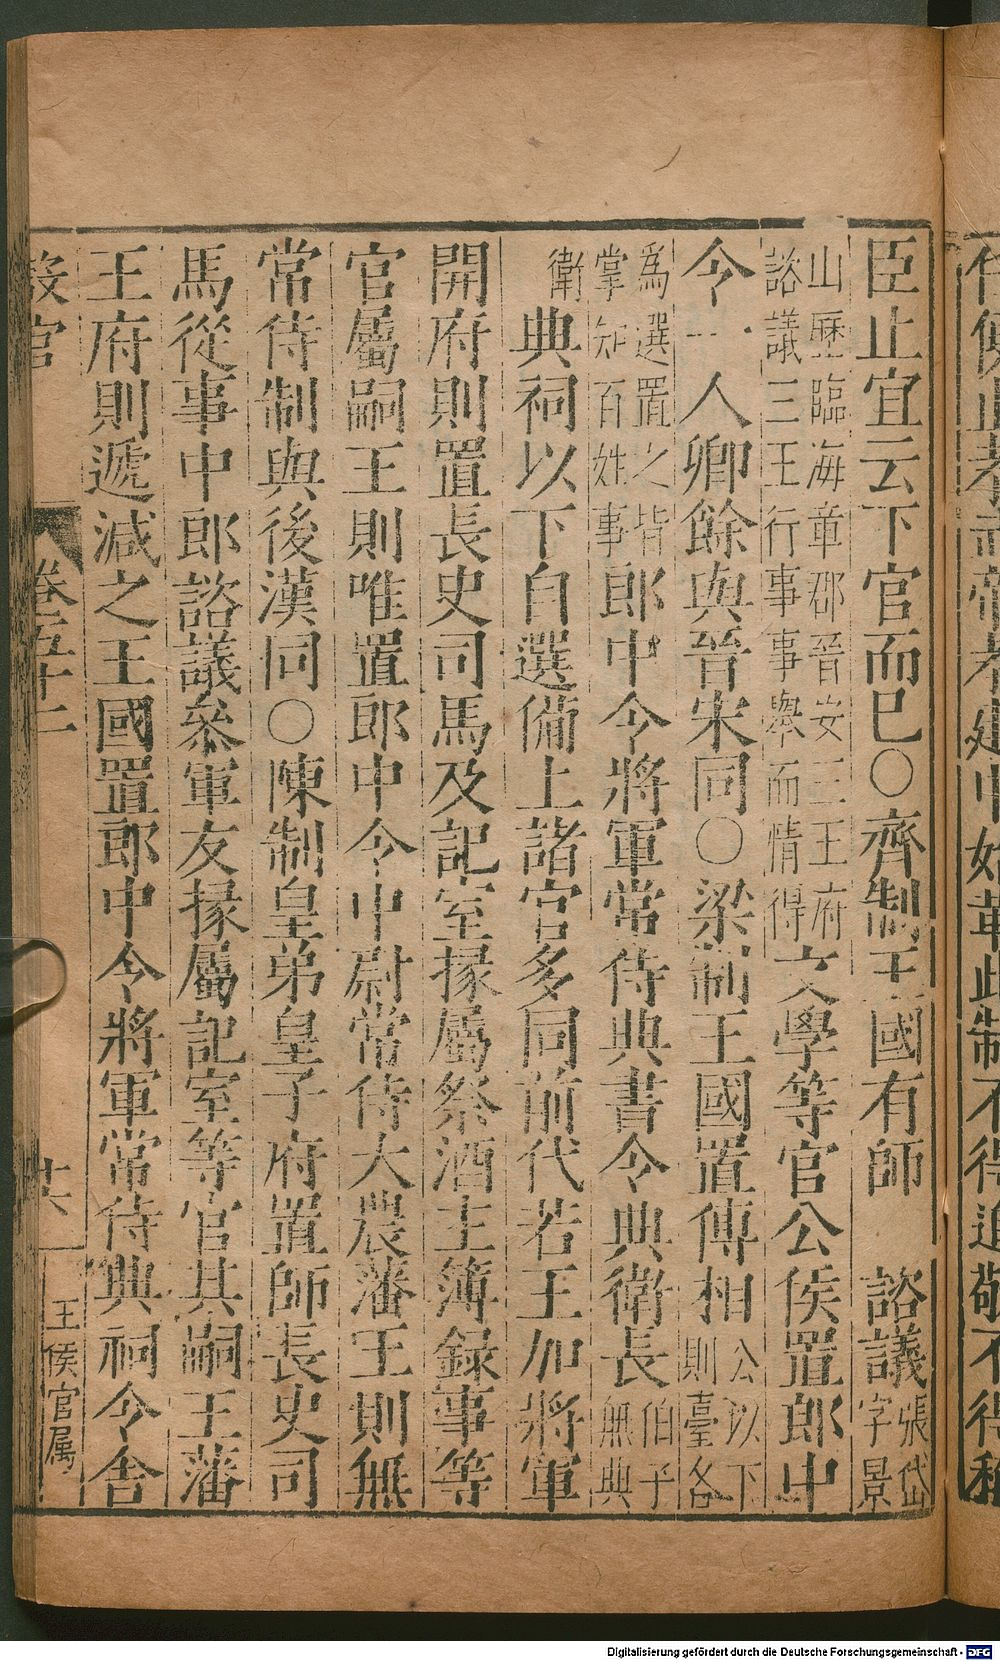 孝建中始革此制不得追敬不得稱
臣止宜云下官而已〇齊制王國有師 諮議張岱
字景
山歷臨海章郡晉安三王府
諮議三王行事事舉而情得文學等官公侯置郎中
今一人卿餘與晉宋同〇梁制王國置傅相公以下
則臺各
為選置之皆
掌知百姓事郎中令將軍常侍典書令典衛長伯子
無典
衛典祠以下自選備上諸官多同前代若王加將軍
開府則置長史司馬及記室掾屬祭酒主簿錄事等
官屬嗣王則唯置郎中令中尉常侍大農藩王則無
常侍制與後漢同〇陳制皇弟皇子府置師長史司
馬從事中郎諮議參軍友掾屬記室等官其嗣王藩
王府則遞減之王國置郎中令將軍常侍典祠令舍
設官
卷五十二
十六
王侯官属
Digitalisierung gefördert durch die Deutsche Forschungsgemeinschaft - DFG